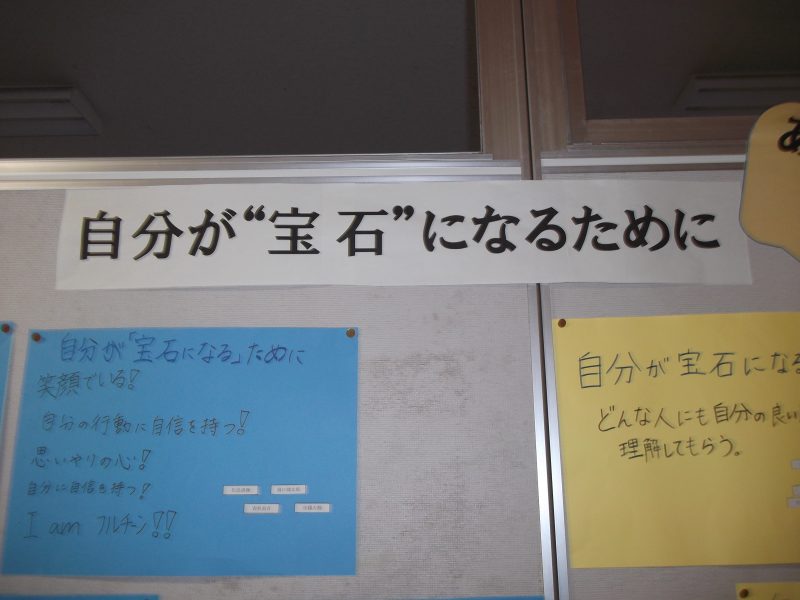 自分が“宝石”になるために
あ
自分が「宝石になる」ために
笑顔でいる!
自分の行動に自信を持つ!
思いやりの心!
自分に自信を持つ!
I am フルチン!!
自分が宝石になる
どんな人にも自分の良い
理解してもらう。